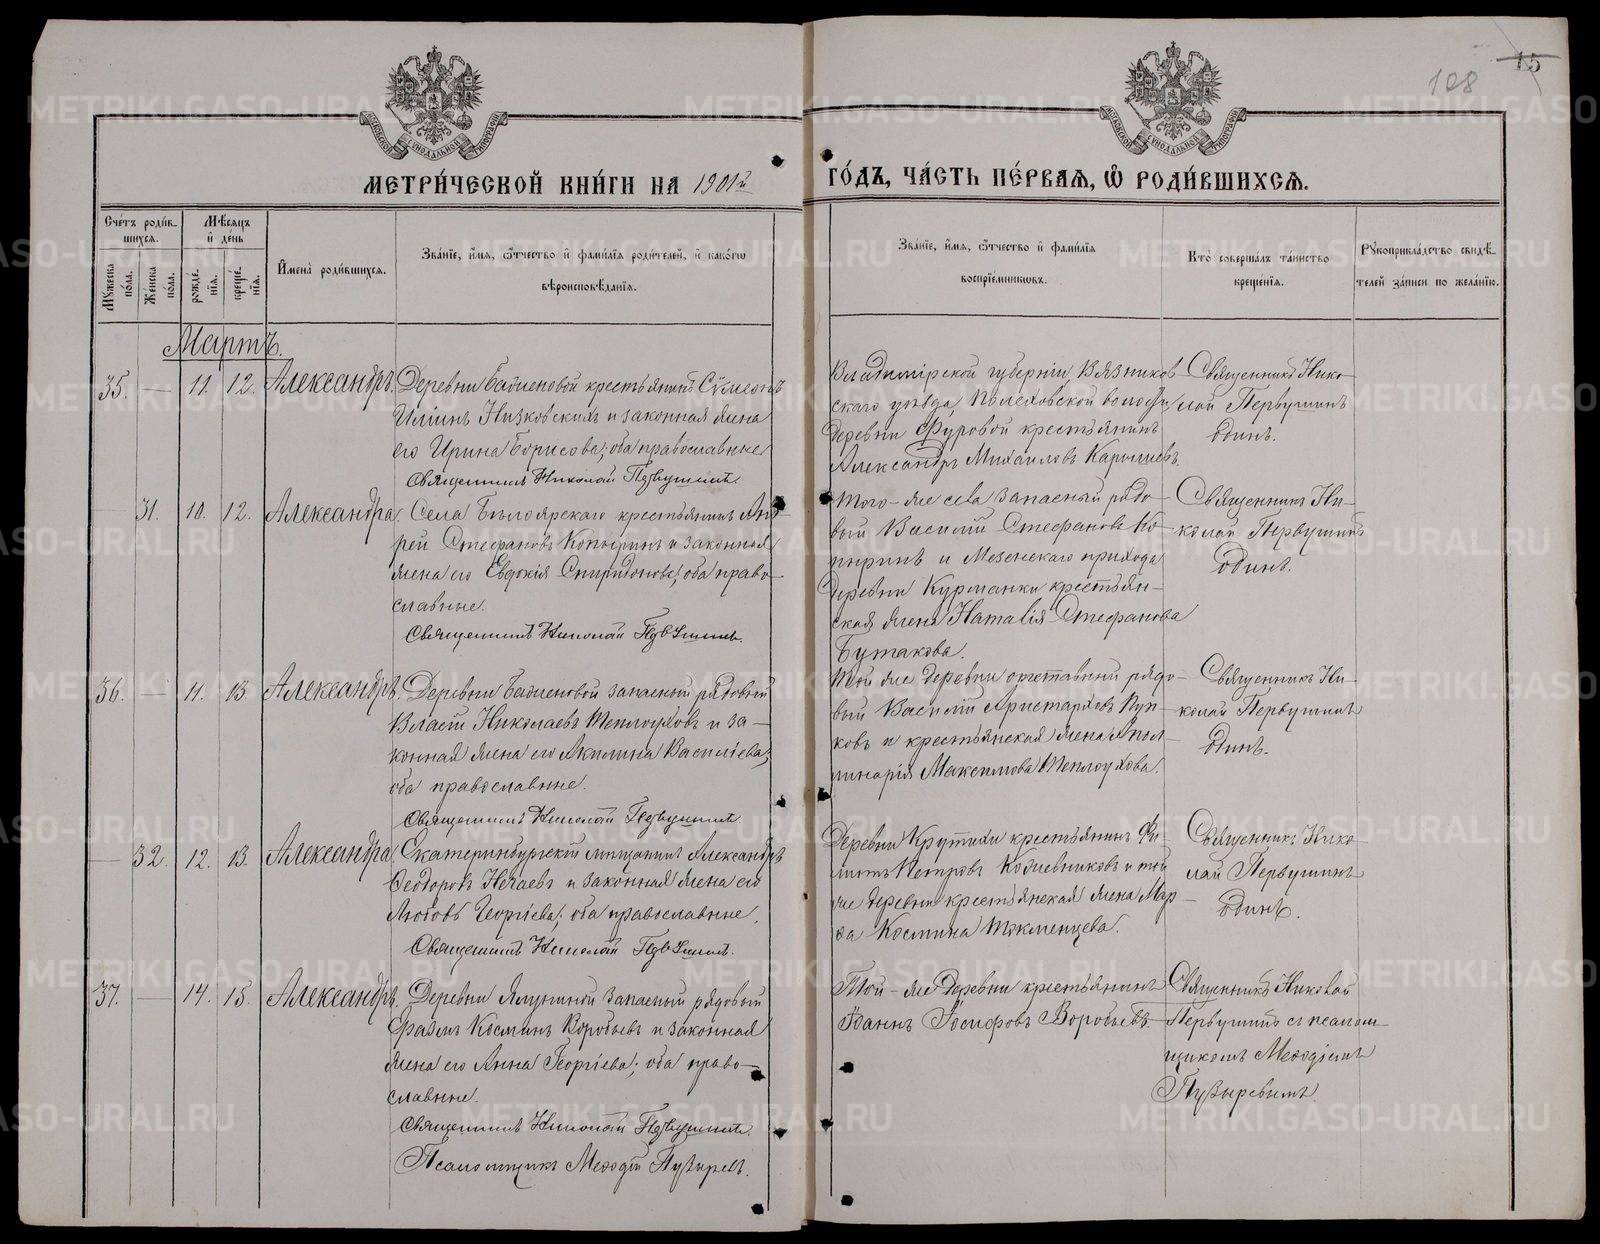 108
15
МЕТРИ́ЧЕСКОЙ КНИ́ГИ НА 1901й
ГО́ДЪ, ЧА́СТЬ ПЕ́РВАЯ, Ѽ РОДИ́ВШИХСЯ.
Сче́тъ роди́в-
шихся.
Му́жеска по́ла.
Же́нска по́ла.
Мѣ́сяцъ
и҆ де́нь
рожде́нїя.
креще́нїя.
И҆мена̀ роди́вшихся.
Зва́нїе, и҆́мя, ѻ҆́тчество и҆ фами́лїя роди́телей, и҆ како́гѡ
вѣроисповѣ́данїя.
Зва́нїе, и҆́мя, ѻ҆́тчество и҆ фами́лїя
воспрїе́мникѡвъ.
Кто̀ соверша́лъ та́инство
креще́нїя.
Рꙋкоприкла́дство свидѣ́-
телей за́писи по жела́нїю.
Мартъ.
35. — 11. 12. Александръ.
Деревни Бабиеновой крестьянинъ Сѵмеонъ
Илиинъ Низковскихъ и законная жена
его Ирина Борисова; оба православные
Священникъ Николай Первушинъ
Владимірской губерніи, Вязников-
скаго уѣзда,
деревни Фуровой крестьянинъ
Александръ Михаиловъ Карышевъ.
Священникъ Нико-
лай Первушинъ
одинъ.
— 31. 10. 12. Александра.
Села Бѣлоярскаго крестьянинъ Анд-
рей Стефановъ Копыринъ и законная
жена его Евдокія Спиридонова; оба право-
славные.
Священникъ Николай Первушинъ.
Того-же села запасный рядо-
вый Василій Стефановъ Ко-
пыринъ и Мезенскаго прихода
деревни Курманки крестьян-
ская жена Наталія Стефанова
Бутакова.
Священникъ Ни-
колай Первушинъ
одинъ.
36. — 11. 13. Александръ.
Деревни Бабиеновой запасный рядовый
Власій Николаевъ Теплоуховъ и за-
конная жена его Акилина Васильева;
оба православные.
Священникъ Николай Первушинъ
Той же деревни отставный рядо-
вый Василій Аристарховъ Пуп-
ковъ и крестьянская жена Апол-
линарія Максимова Теплоухова.
Священникъ Ни-
колай Первушинъ
одинъ.
— 32. 12. 13. Александра.
Екатеринбургскій мѣщанинъ Александръ
Ѳеодоровъ Нечаевъ и законная жена его
Любовь Георгіева; оба православные.
Священникъ Николай Первушинъ.
Деревни Крутихи крестьянинъ Фи-
липпъ Петровъ Кожевниковъ и той
же деревни крестьянская жена Мар-
ѳа Космина Токменцева.
Священникъ Нико-
лай Первушинъ
одинъ.
37. — 14. 15. Александръ.
Деревни Ялуниной запасный рядовый
Еразмъ Косминъ Воробьевъ и законная
жена его Анна Георгіева; оба право-
славные.
Священникъ Николай Первушинъ.
Псаломщикъ Меѳодій Пузыревъ.
Той-же деревни крестьянинъ
Іоаннъ Іосифовъ Воробьевъ
Священникъ Николай
Первушинъ съ псалом-
щикомъ Меѳодіемъ
Пузыревымъ.
METRIKI.GASO-URAL.RU